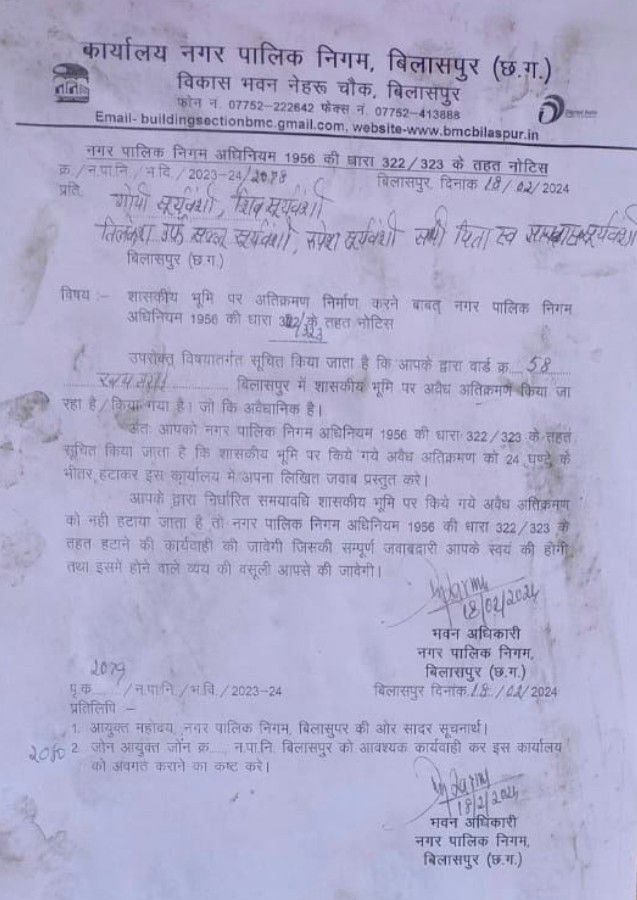 कार्यालय नगर पालिक निगम, बिलासपुर (छ.ग.)
विकास भवन नेहरू चौक, बिलासपुर
फोन नं. 07752-222642 फेक्स नं. 07752-413888
Email- buildingsectionbmc.gmail.com, website-www.bmcbilaspur.in
नगर पालिक निगम अधिनियम 1956 की धारा 322/323 के तहत नोटिस
क्र./न.पा.नि./भ.वि./2023-24/2078 बिलासपुर, दिनांक 18/02/2024
प्रति,
गोपी सूर्यवंशी, शिव सूर्यवंशी
तिलकेश उर्फ सूर्यवंशी, रुपेश सूर्यवंशी सभी पिता स्व सूर्यवंशी
बिलासपुर (छ.ग.)
विषय :- शासकीय भूमि पर अतिक्रमण निर्माण करने बाबत् नगर पालिक निगम
अधिनियम 1956 की धारा 322/323 के तहत नोटिस
उपरोक्त विषयातर्गत सूचित किया जाता है कि आपके द्वारा वार्ड क्र. 58
बिलासपुर में शासकीय भूमि पर अवैध अतिक्रमण किया जा
रहा है/किया गया है। जो कि अवैधानिक है।
अतः आपको नगर पालिक निगम अधिनियम 1956 की धारा 322/323 के तहत
सूचित किया जाता है कि शासकीय भूमि पर किये गये अवैध अतिक्रमण को 24 घण्टे के
भीतर हटाकर इस कार्यालय मे अपना लिखित जवाब प्रस्तुत करे।
आपके द्वारा निर्धारित समयावधि शासकीय भूमि पर किये गये अवैध अतिक्रमण
को नही हटाया जाता है तो नगर पालिक निगम अधिनियम 1956 की धारा 322/323 के
तहत हटाने की कार्यवाही की जावेगी जिसकी सम्पूर्ण जवाबदारी आपके स्वयं की होगी
तथा इसमे होने वाले व्यय की वसूली आपसे की जावेगी।
18/02/2024
भवन अधिकारी
नगर पालिक निगम,
बिलासपुर (छ.ग.)
2079
पृ.क्र...... /न.पा.नि./भ.वि./2023-24 बिलासपुर दिनांक 18/02/2024
प्रतिलिपि –
1. आयुक्त महोदय, नगर पालिक निगम, बिलासुपर की ओर सादर सूचनार्थ।
2080 2. जोन आयुक्त जोन क्र...... न.पा.नि. बिलासपुर को आवश्यक कार्यवाही कर इस कार्यालय
को अवगत कराने का कष्ट करे।
18/2/2024
भवन अधिकारी
नगर पालिक निगम,
बिलासपुर (छ.ग.)